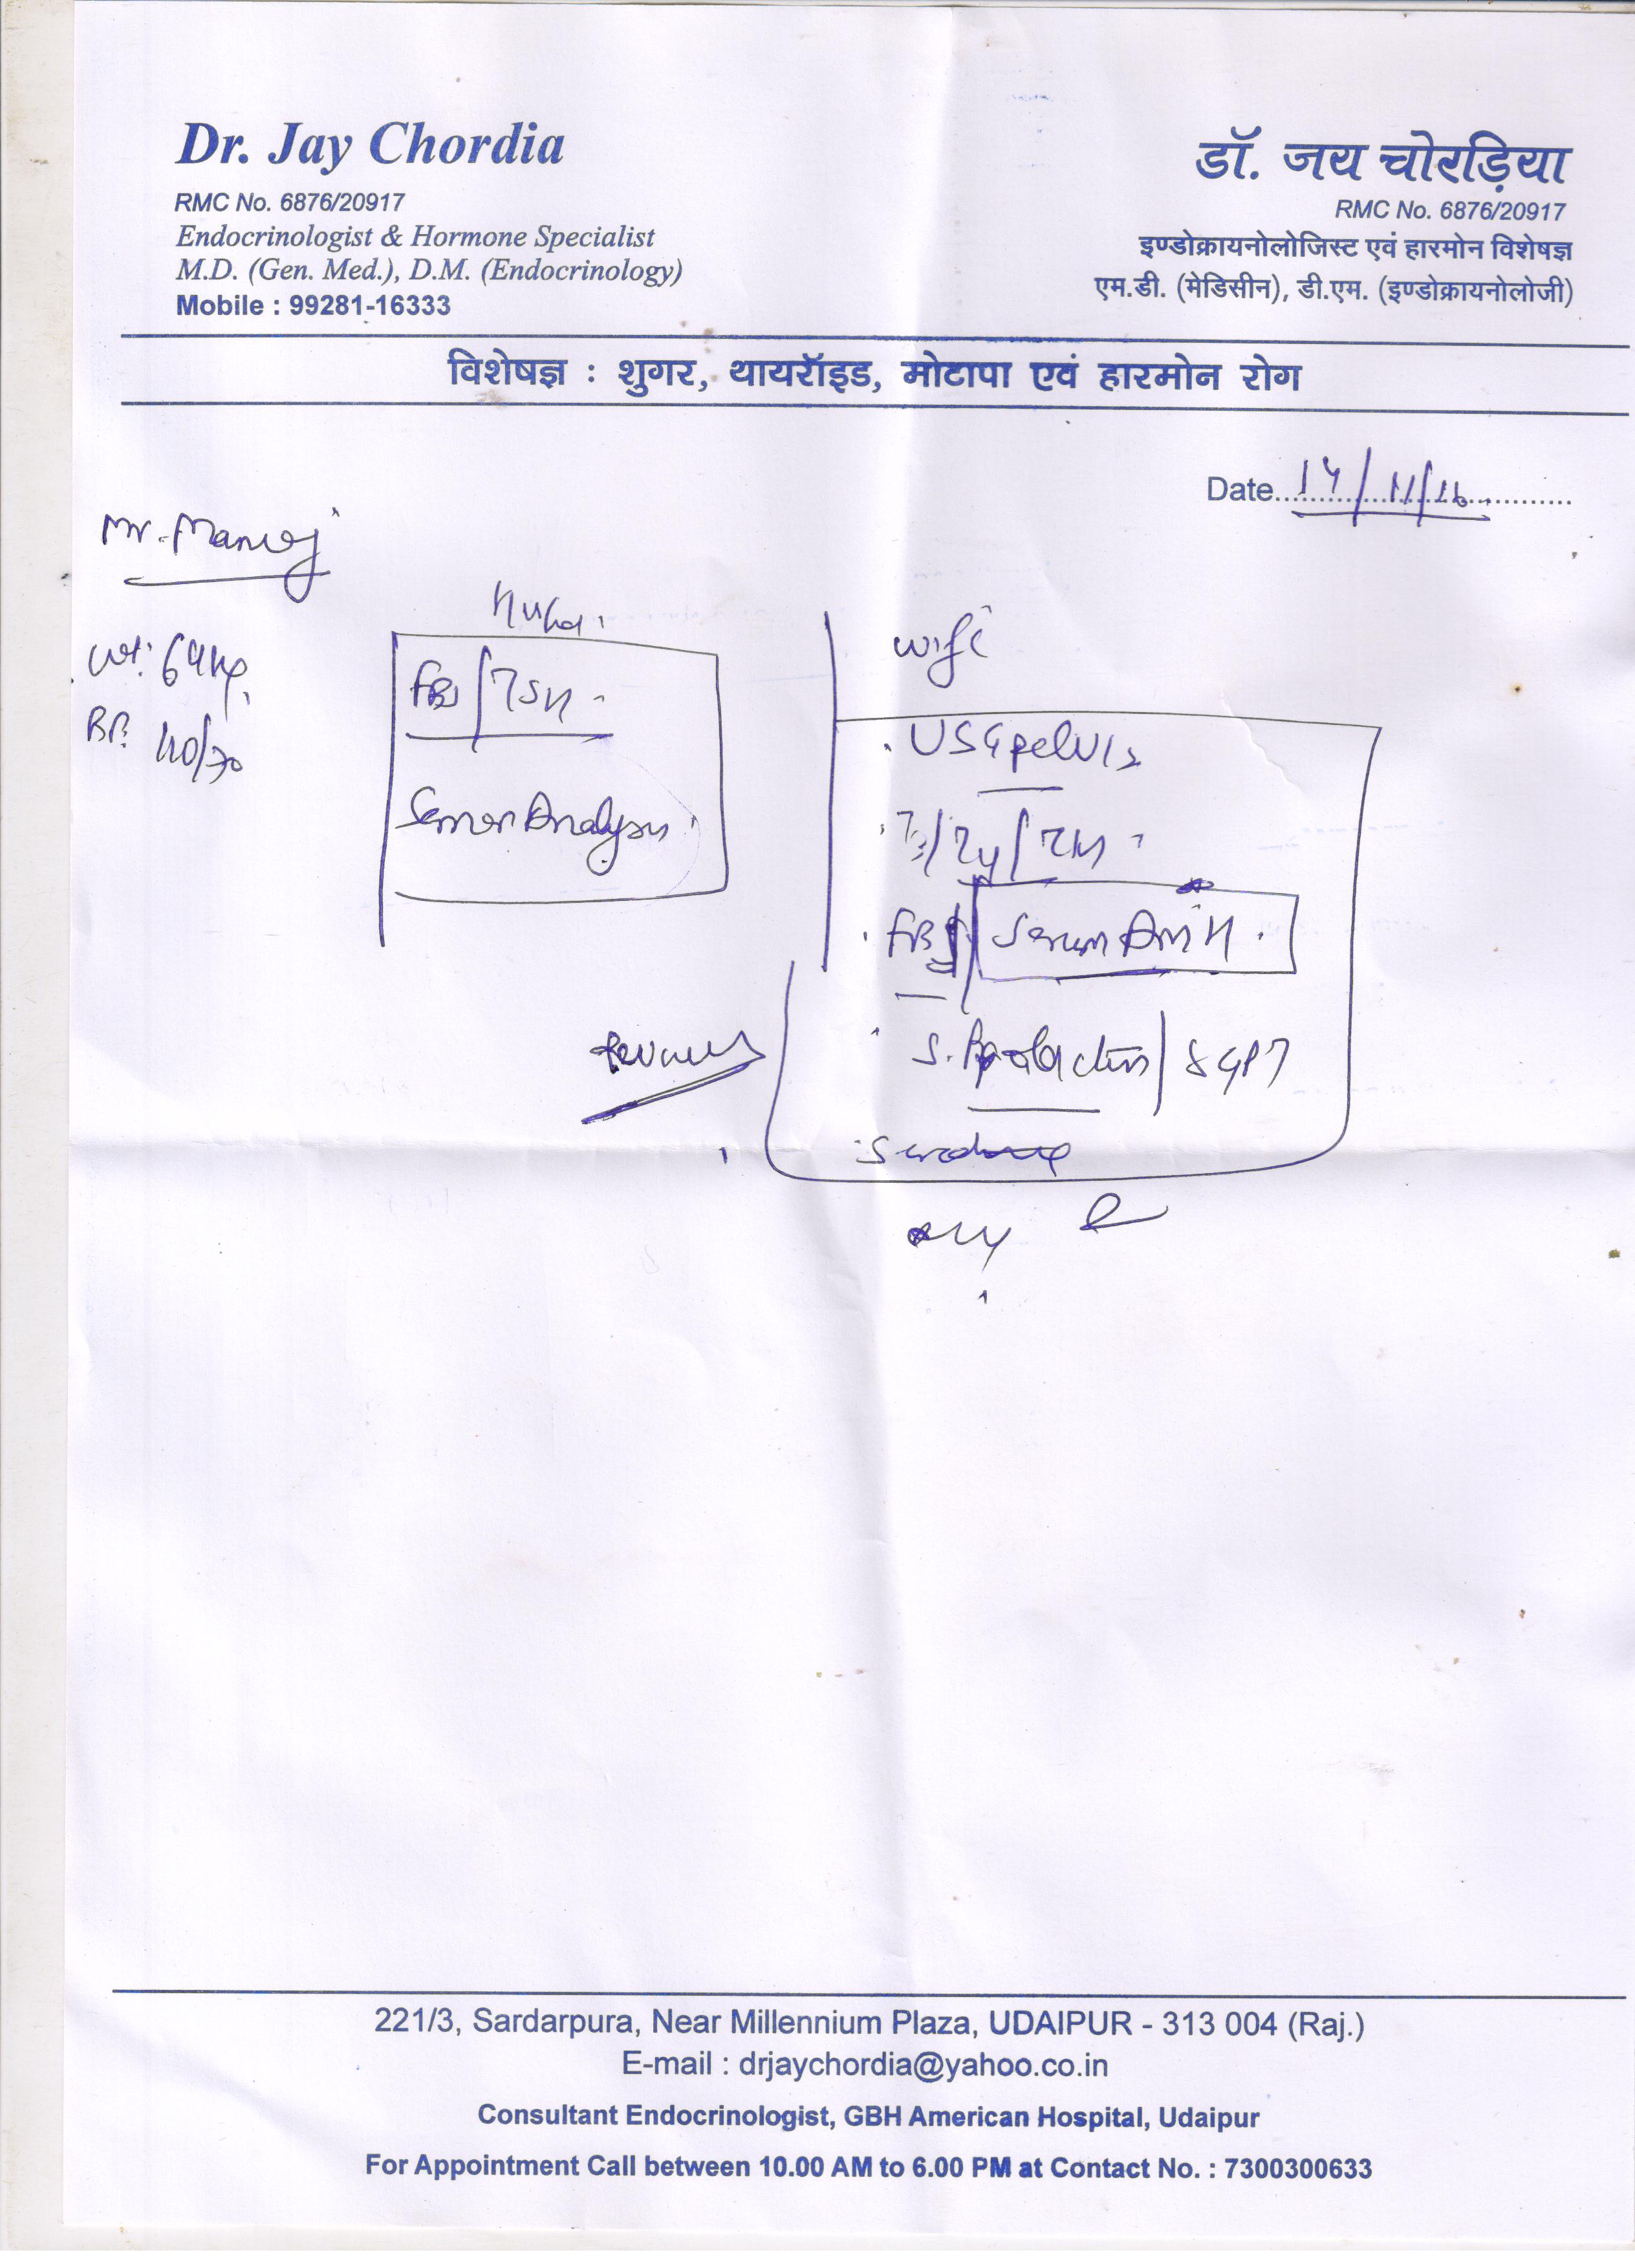 Dr. Jay Chordia
RMC No. 6876/20917
Endocrinologist & Hormone Specialist
M.D. (Gen. Med.), D.M. (Endocrinology)
Mobile : 99281-16333
डॉ. जय चोरड़िया
RMC No. 6876/20917
इण्डोक्रायनोलोजिस्ट एवं हारमोन विशेषज्ञ
एम.डी. (मेडिसीन), डी.एम. (इण्डोक्रायनोलोजी)
विशेषज्ञ : शुगर, थायरॉइड, मोटापा एवं हारमोन रोग
Date 14/11/16
Mr. Manoj
Wt: 64kg
BP. 110/70
FBS/TSH
Semen Analysis
Wife
USG pelvis
T3/T4/TSH
FBS/ Serum AMH.
S. Prolactin/SGPT
221/3, Sardarpura, Near Millennium Plaza, UDAIPUR - 313 004 (Raj.)
E-mail : drjaychordia@yahoo.co.in
Consultant Endocrinologist, GBH American Hospital, Udaipur
For Appointment Call between 10.00 AM to 6.00 PM at Contact No. : 7300300633